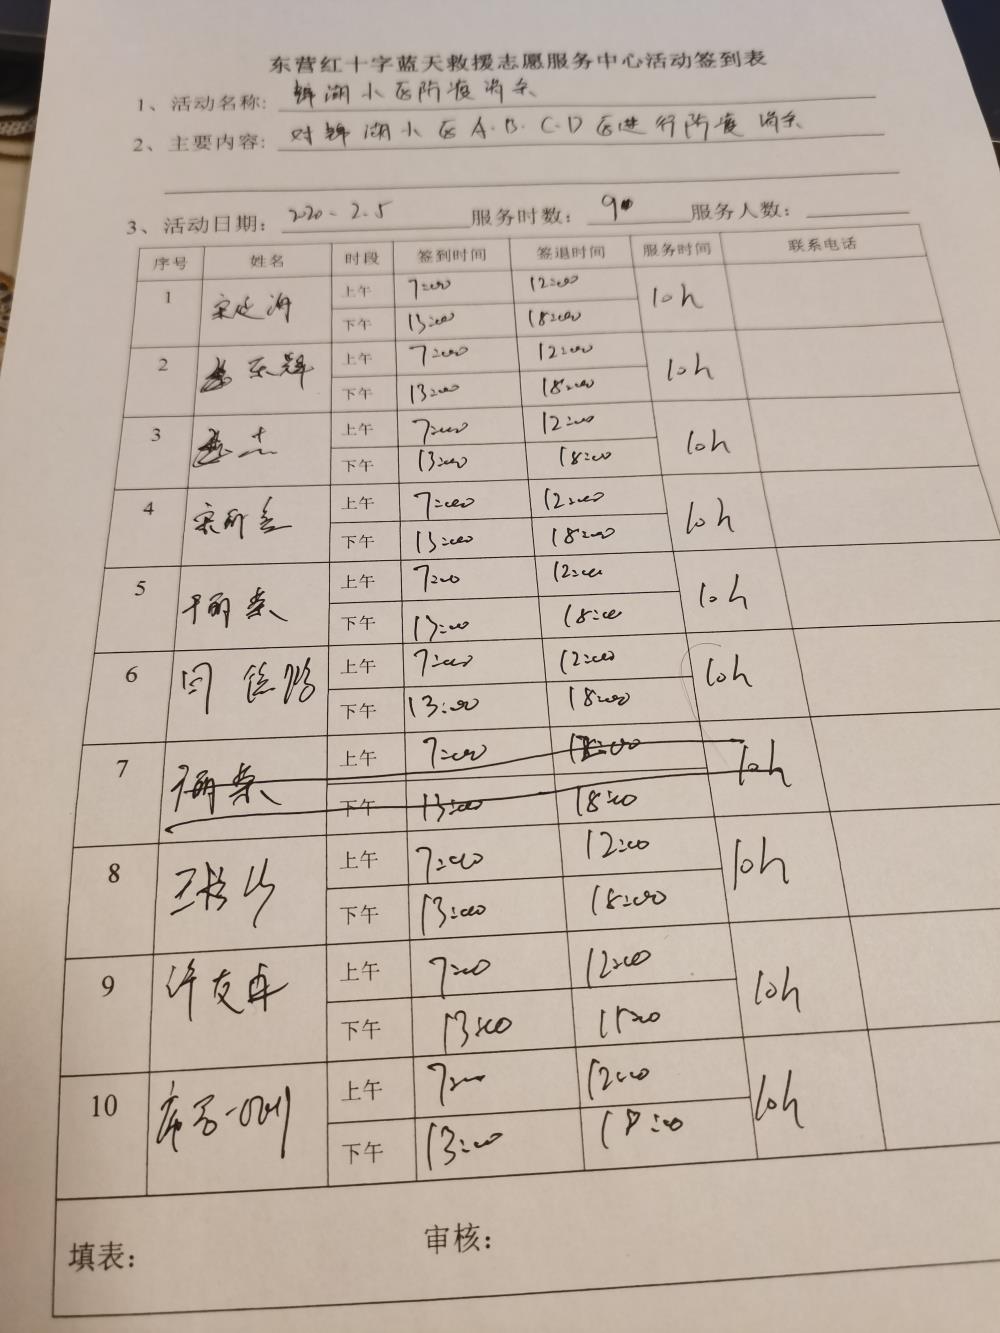 东营红十字蓝天救援志愿服务中心活动签到表
1、活动名称: 锦湖小区防疫消杀
2、主要内容: 对锦湖小区A.B.C.D区进行防疫消杀
3、活动日期: 2020-2.5 服务时数: 90 服务人数:
序号 姓名 时段 签到时间 签退时间 服务时间 联系电话
1 上午 7:00 12:00 10h
下午 13:00 18:00
2 上午 7:00 12:00 10h
下午 13:00 18:00
3 上午 7:00 12:00 10h
下午 13:00 18:00
4 上午 7:00 12:00 10h
下午 13:00 18:00
5 上午 7:00 12:00 10h
下午 13:00 18:00
6 上午 7:00 12:00 10h
下午 13:00 18:00
7 上午 7:00 12:00 10h
下午 13:00 18:00
8 上午 7:00 12:00 10h
下午 13:00 18:00
9 许友卓 上午 7:00 12:00 10h
下午 13:00
10 上午 7:00 12:00 10h
下午 13:00 18:00
填表: 审核: